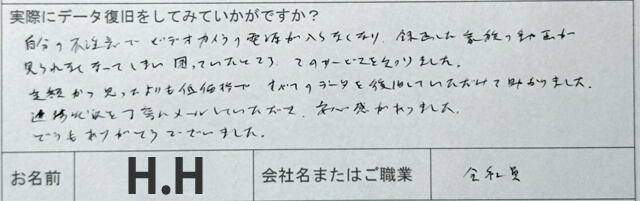 実際にデータ復旧をしてみていかがですか?
自分の不注意でビデオカメラの電源が入らなくなり、録画した家族の動画が
見られなくなってしまい困っていたところ、このサービスを知りました。
当初から思ったよりも低価格で すべてのデータを復旧していただけて助かりました。
進捗状況を丁寧にメールしていただき、安心感がありました。
どうもありがとうございました。
お名前
H.H
会社名またはご職業
会社員